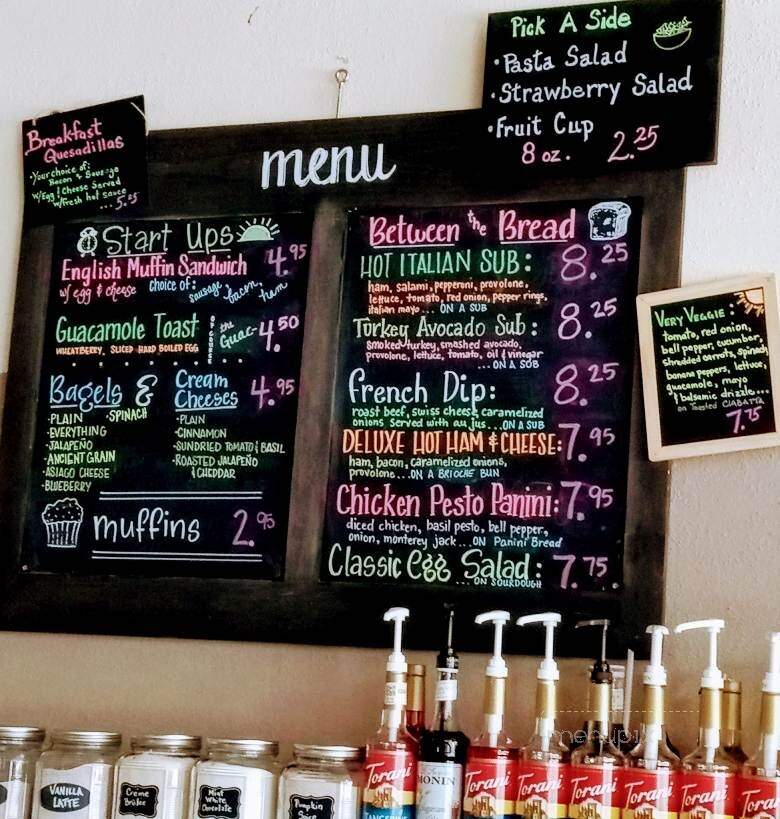 Pick A Side
•Pasta Salad
•Strawberry Salad
•Fruit Cup
8 oz. 2.25
Breakfast
Quesadillas
•Your choice of:
Bacon & Sausage
w/Egg & Cheese Served
w/fresh hot sauce
...5.25
menu
Start Ups
English Muffin Sandwich 4.95
w/ egg & cheese choice of: sausage, bacon, ham
Guacamole Toast the Guac- 4.50
WHEATBERRY, SLICED HARD BOILED EGG
Bagels & Cream Cheeses 4.95
•PLAIN •SPINACH
•EVERYTHING
•JALAPEÑO
•ANCIENT GRAIN
•ASIAGO CHEESE
•BLUEBERRY
•PLAIN
•CINNAMON
•SUNDRIED TOMATO & BASIL
•ROASTED JALAPEÑO
& CHEDDAR
muffins 2.95
Between the Bread
HOT ITALIAN SUB: 8.25
ham, salami, pepperoni, provolone,
lettuce, tomato, red onion, pepper rings,
italian mayo... ON A SUB
Turkey Avocado Sub: 8.25
smoked turkey, smashed avocado,
provolone, lettuce, tomato, oil & vinegar
...ON A SUB
French Dip: 8.25
roast beef, swiss cheese, caramelized
onions served with au jus...ON A SUB
DELUXE HOT HAM & CHEESE: 7.95
ham, bacon, caramelized onions,
provolone...ON A BRIOCHE BUN
Chicken Pesto Panini: 7.95
diced chicken, basil pesto, bell pepper,
onion, monterey jack...ON Panini Bread
Classic Egg Salad: 7.75
...ON SOURDOUGH
VERY VEGGIE:
tomato, red onion,
bell pepper, cucumber,
shredded carrots, spinach,
banana peppers, lettuce,
guacamole, mayo
& balsamic drizzle...
on Toasted CIABATTA
7.75
VANILLA
LATTE
Creme
Brûlée
Mint
White
Chocolate
Pumpkin
Spice
Torani
TANGERINE
MONIN
Torani
Torani
Torani
Torani
Torani
Torani
menupix